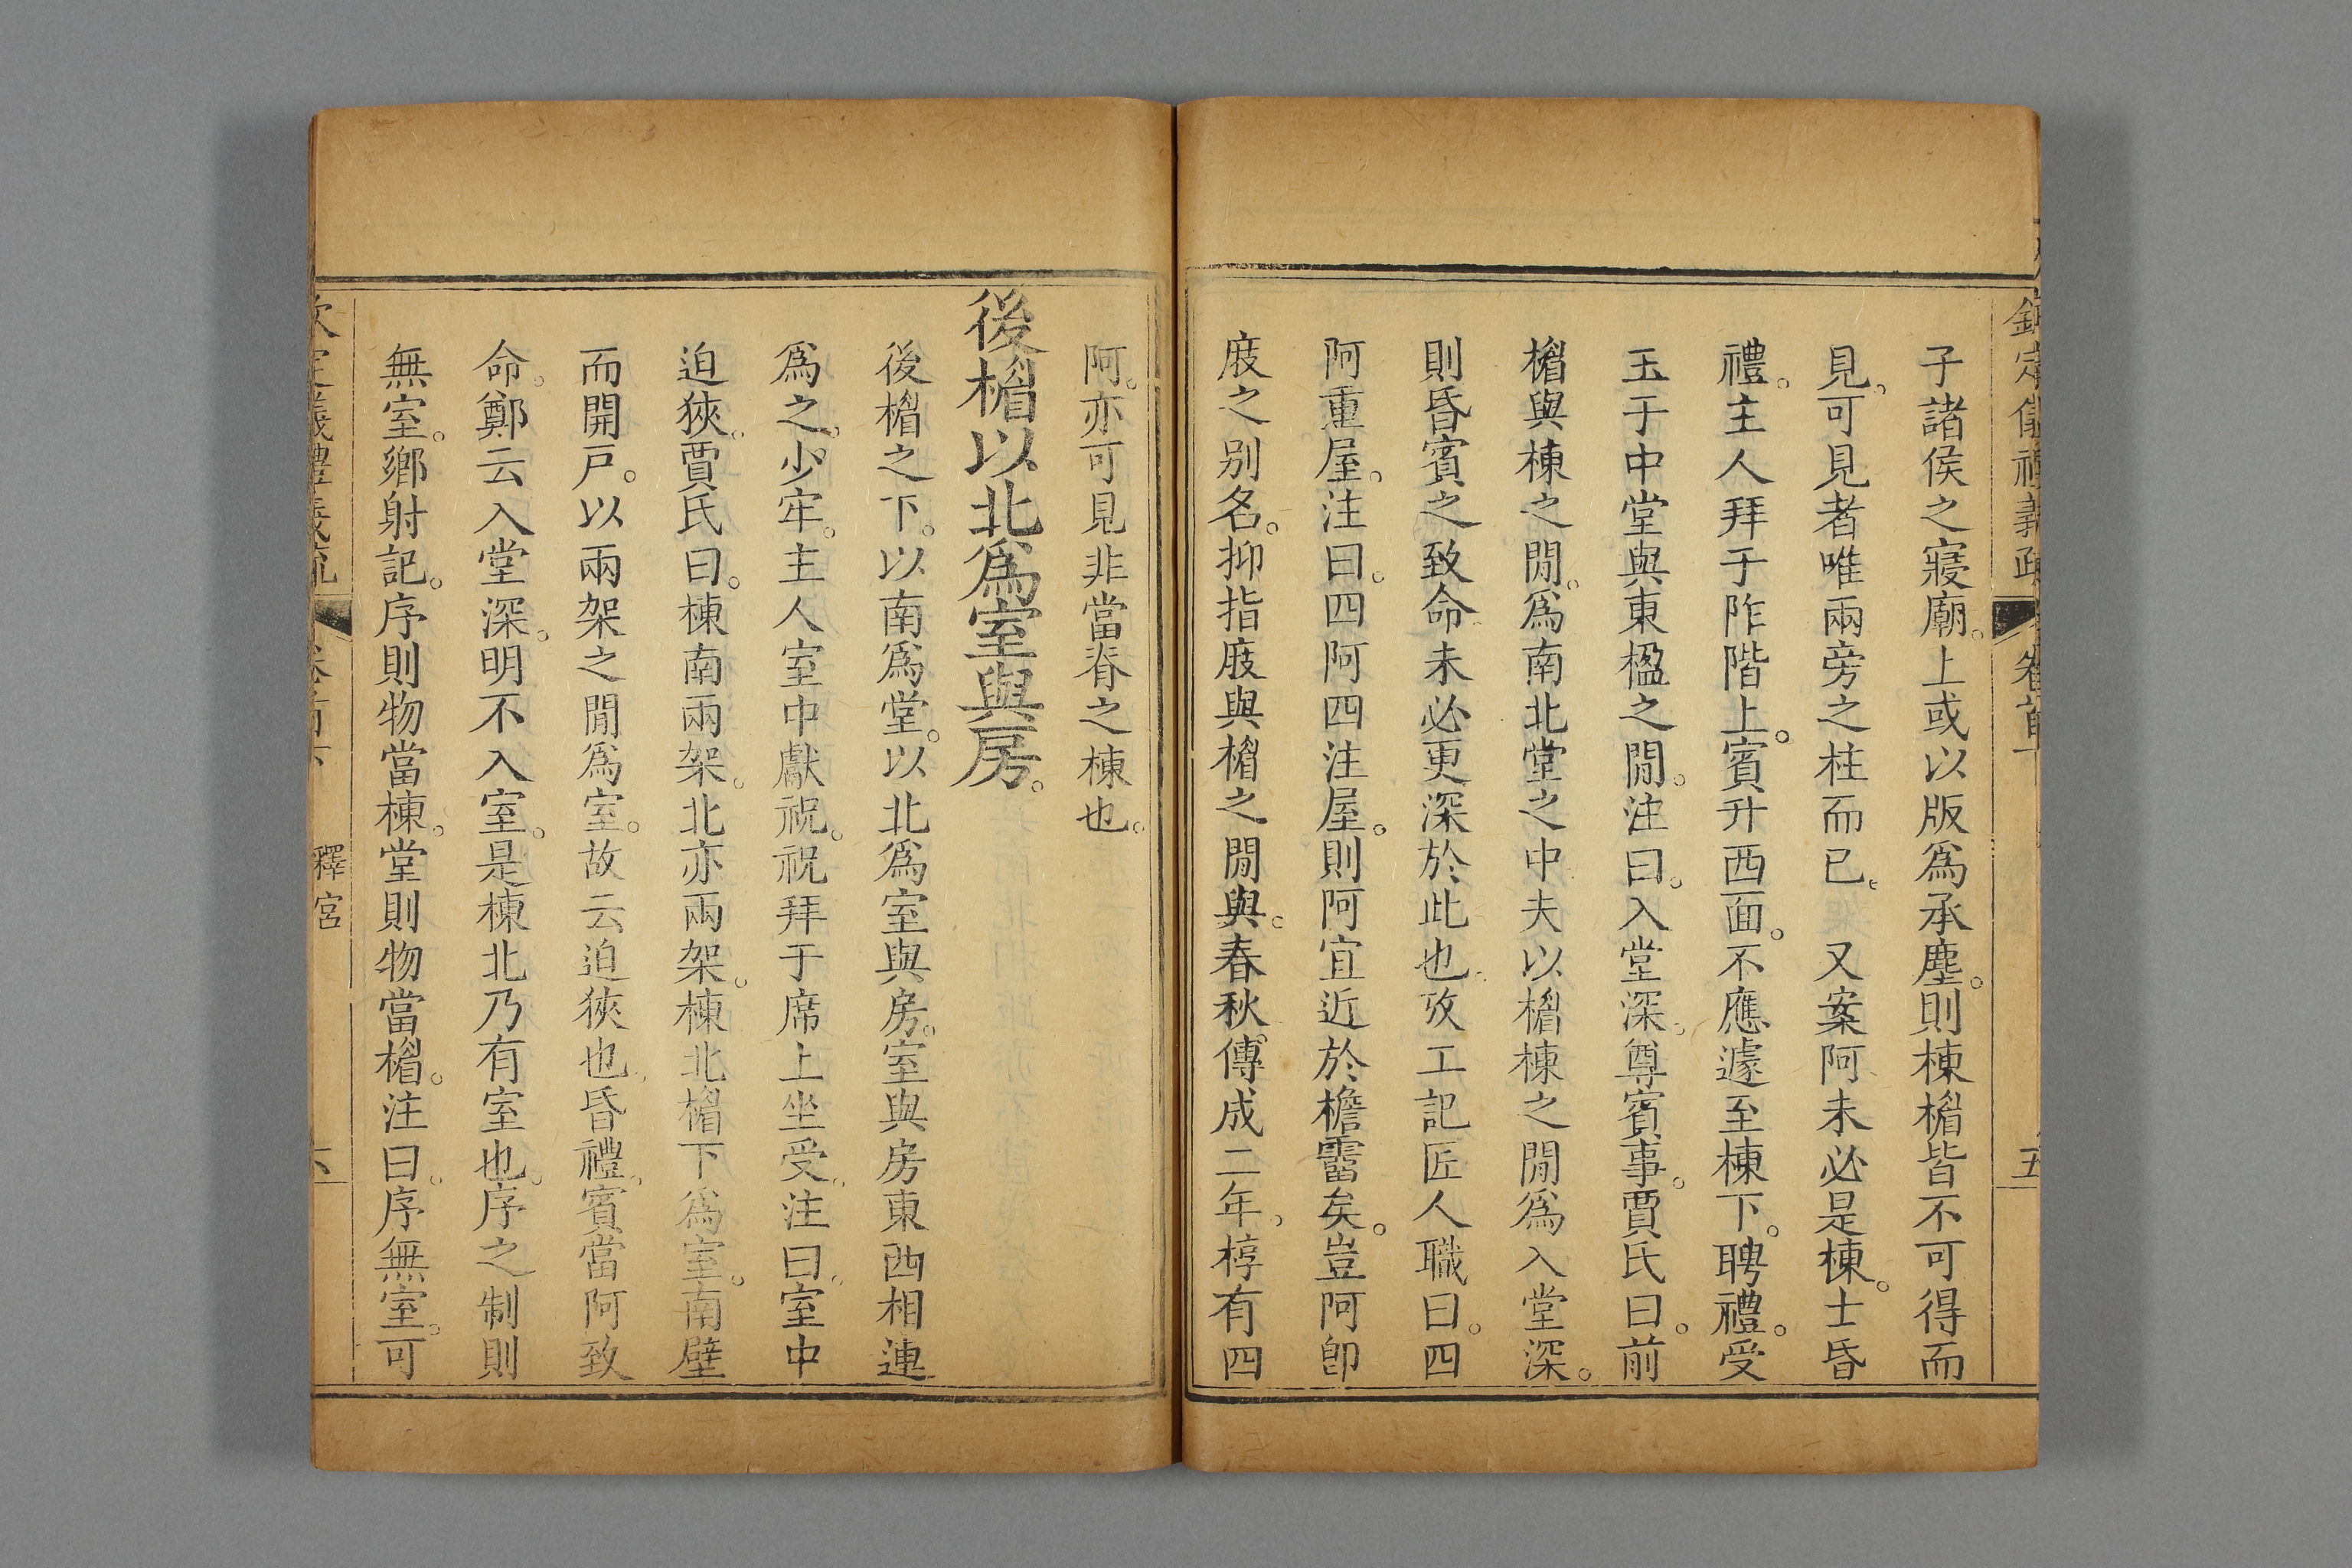 欽定儀禮義疏 卷首下 五
子諸侯之寢廟。上或以版爲承塵。則棟楣皆不可得而
見。可見者唯兩旁之柱而已。 又案阿未必是棟。士昏
禮。主人拜于阼階上。賓升西面。不應遽至棟下。聘禮。受
玉于中堂與東楹之閒。注曰。入堂深。尊賓事。賈氏曰。前
楣與棟之閒。爲南北堂之中夫以楣棟之閒爲入堂深。
則昏賓之致命未必更深於此也。攷工記匠人職曰。四
阿重屋。注曰。四阿四注屋。則阿宜近於檐霤矣。豈阿卽
庪之别名。抑指庪與楣之閒與。春秋傳成二年。椁有四
阿。亦可見非當脊之棟也。
後楣以北爲室與房。
後楣之下。以南爲堂。以北爲室與房。室與房東西相連
爲之。少牢。主人室中獻祝。祝拜于席上坐受。注曰。室中
迫狹。賈氏曰。棟南兩架。北亦兩架。棟北楣下爲室。南壁
而開戸。以兩架之閒爲室。故云迫狹也。昏禮。賓當阿致
命。鄭云入堂深。明不入室。是棟北乃有室也。序之制則
無室。鄉射記。序則物當棟。堂則物當楣。注曰。序無室。可
欽定儀禮義疏 卷首下 釋宮 六